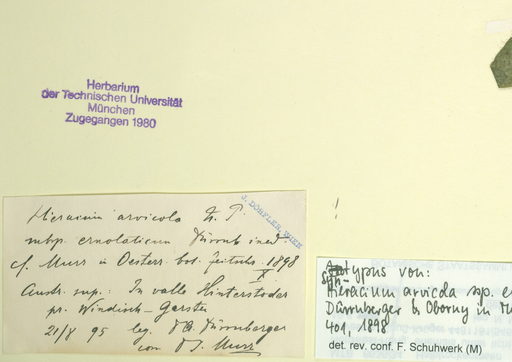 Herbarium
der Technischen Universität
München
Zugegangen 1980
J. DÖRFLER, WIEN
Hieracium arvicola N. P.
subsp. ernolaticum Dürrnb ined.
cf. Murr in Oesterr. bot. Zeitschr. 1898
Austr. sup.: In valle Hinterstoder
pr. Windisch-Garsten
21/8 95 leg. Dr Dürrnberger
com Dr J. Murr
Syntypus von:
Hieracium arvicola ssp.
Dürrnberger & Oborny in
401, 1898
det. rev. conf. F. Schuhwerk (M)